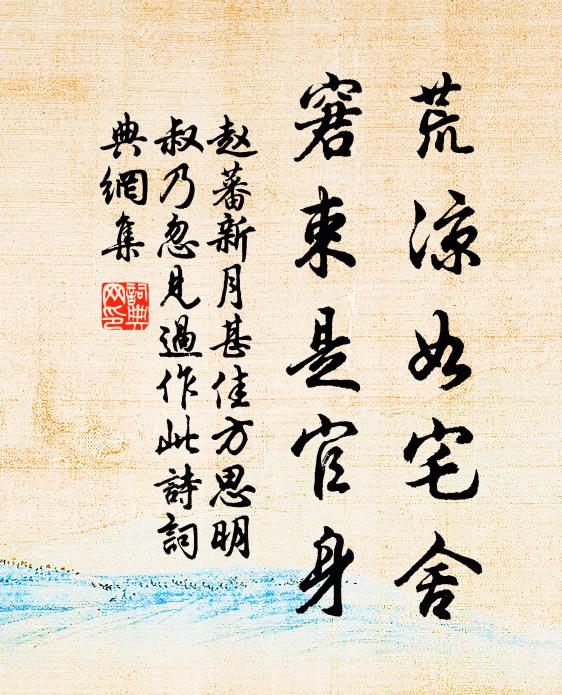 荒凉如宅舍
窘束是官身
赵蕃新月甚佳方思明
叔乃忽见過作此詩詞
典網集
詞典网印